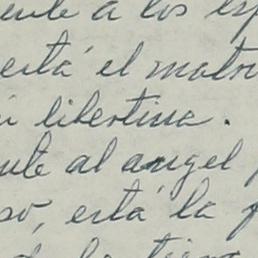 ente a los esp
está el matri
libertina.
nte al angel
so, está la